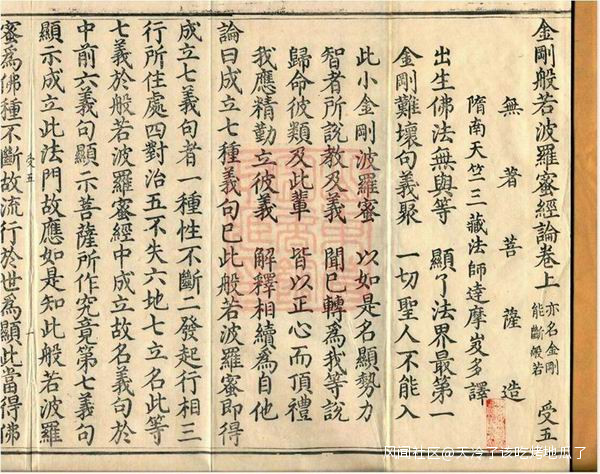 金剛般若波羅蜜經論卷上 亦名金剛能斷般若 受五
無著菩薩造
隋南天竺三藏法師達摩岌多譯
出生佛法無與等 顯了法界最第一
金剛難壞句義聚 一切聖人不能入
此小金剛波羅蜜 以如是名顯勢力
智者所說教及義 聞已轉為我等說
歸命彼類及此輩 皆以正心而頂禮
我應精勤立彼義 解釋相續為自他
論曰成立七種義句已此般若波羅蜜即得
成立七義句者一種性不斷二發起行相三
行所住處四對治五不失六地七立名此等
七義於般若波羅蜜經中成立故名義句於
中前六義句顯示菩薩所作究竟第七義句
顯示成立此法門故應如是知此般若波羅
受五 一
蜜為佛種不斷故流行於世為顯此當得佛
风闻社区@天冷了该吃烤地瓜了